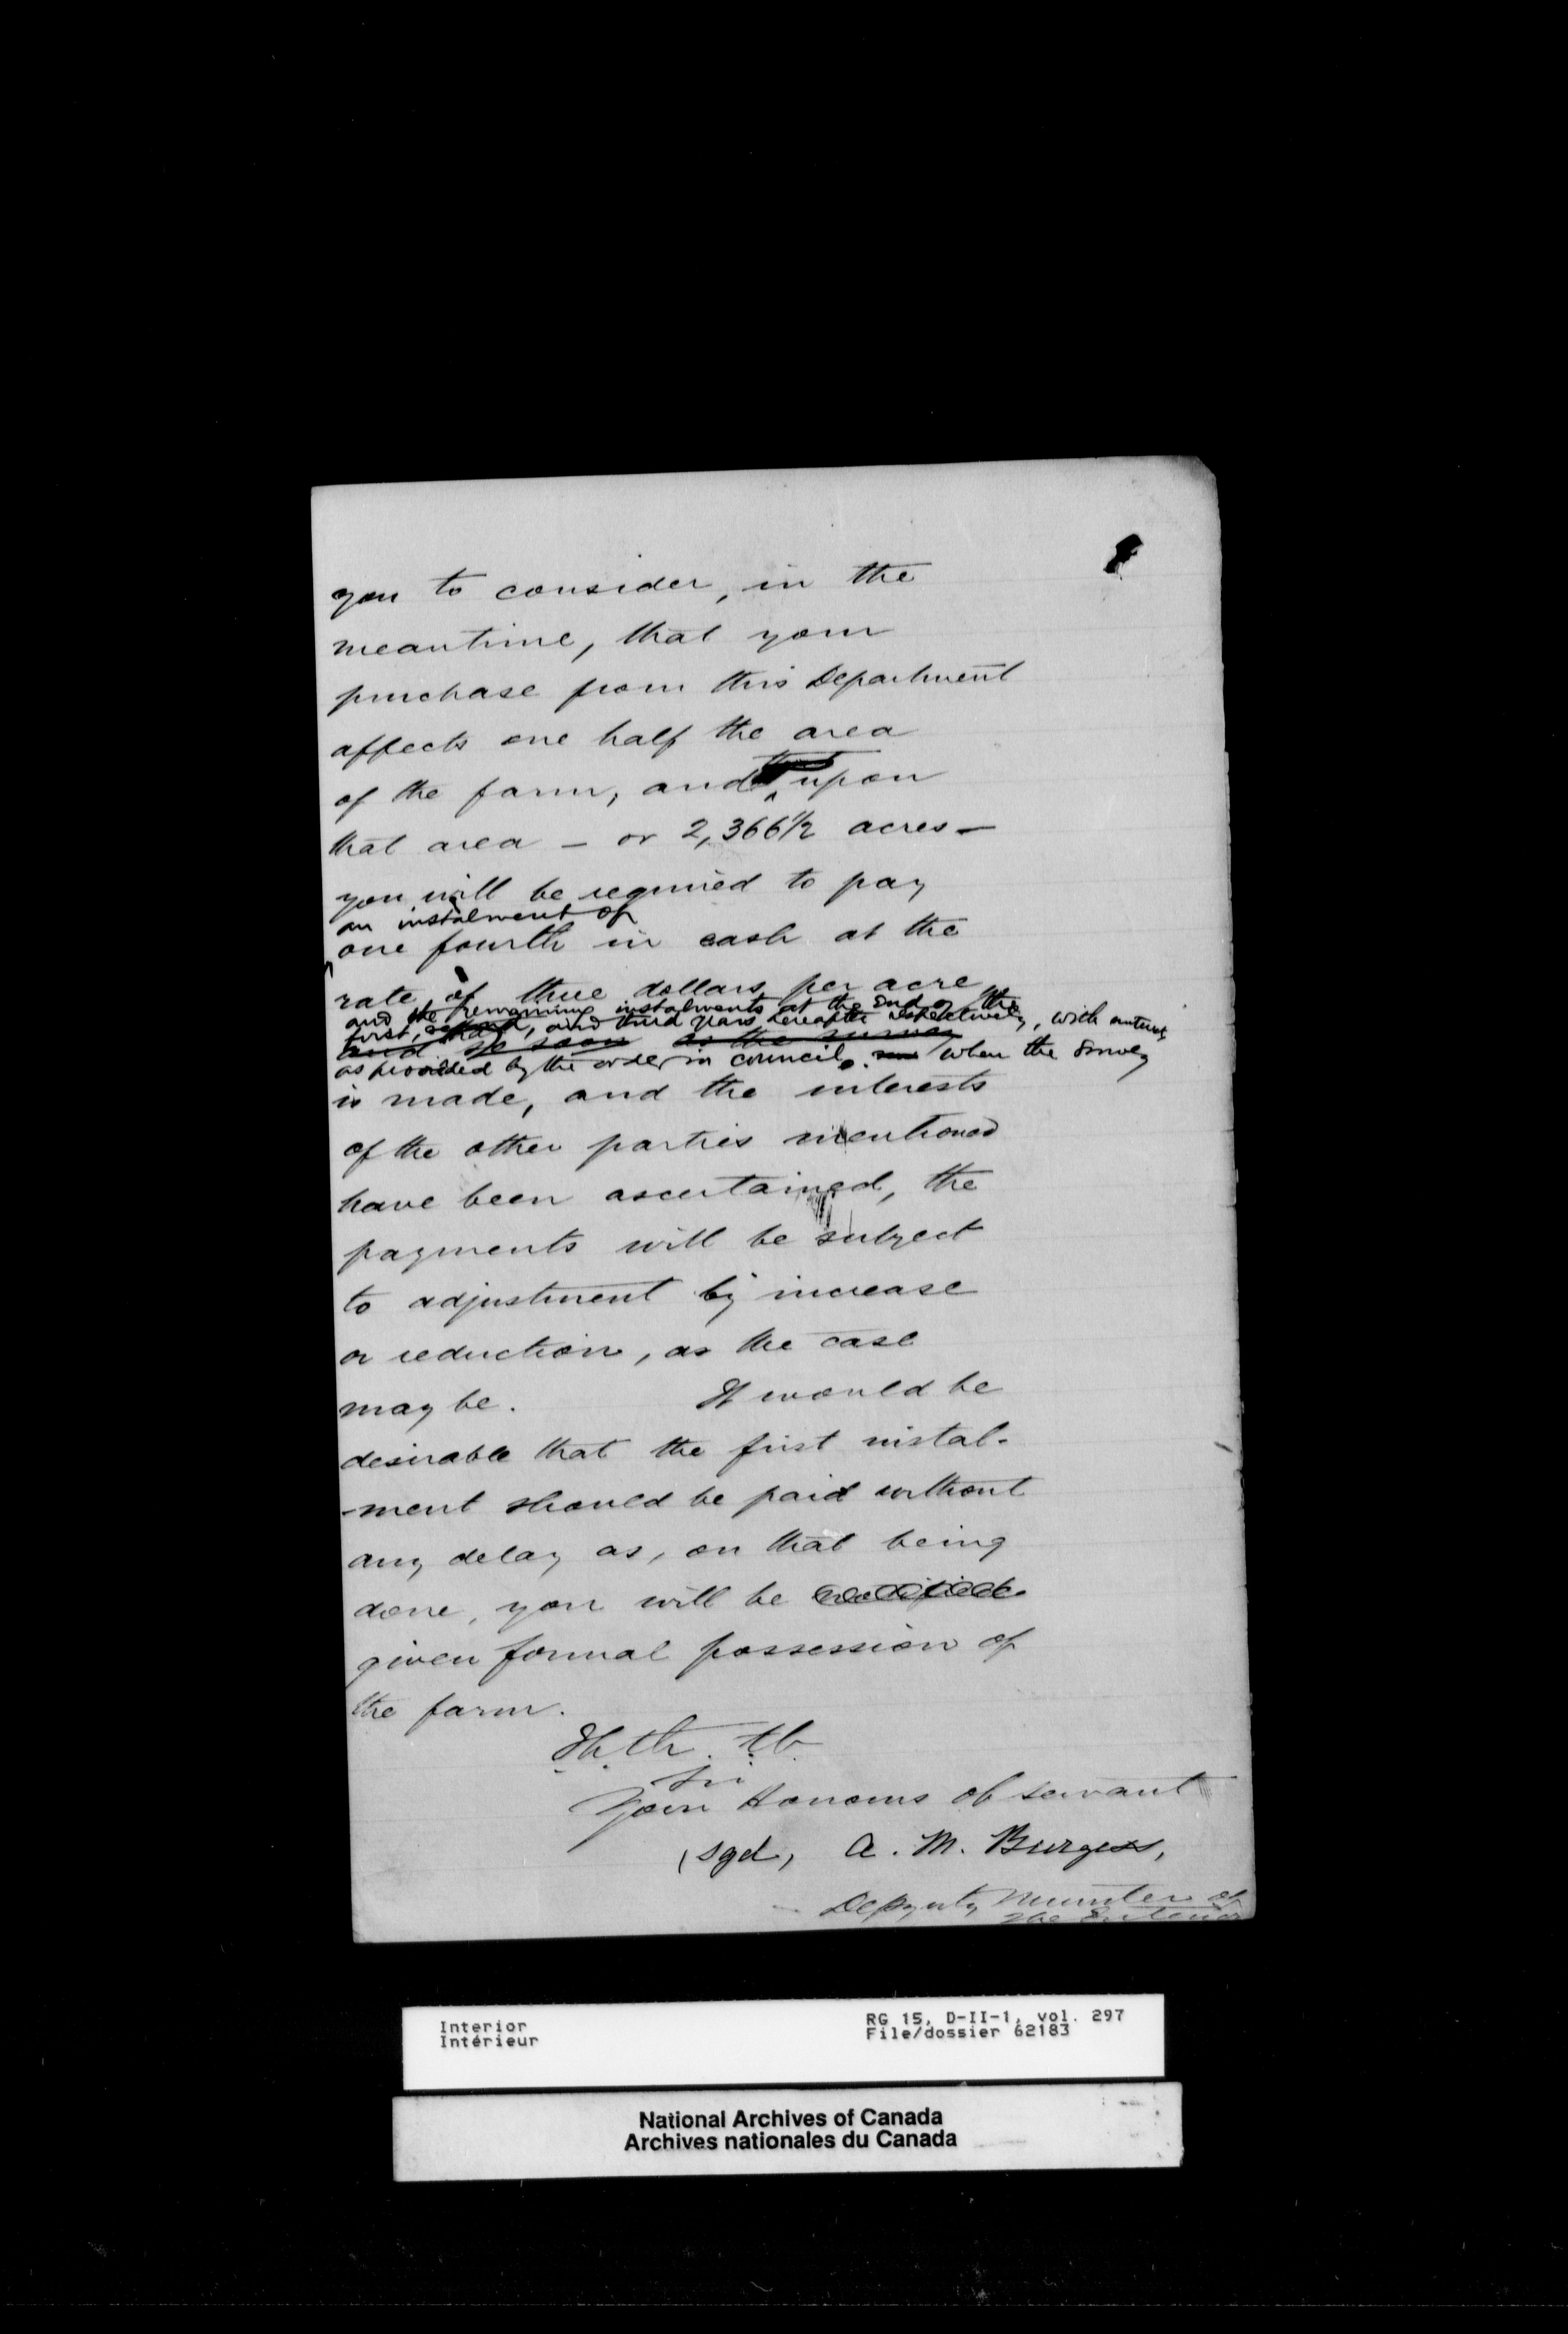 you to consider, in the
meantime, that your
purchase from this Department
affects one half the area
of the farm, and that upon
that area — or 2,366½ acres —
you will be required to pay
an instalment of
one fourth in cash at the
rate of three dollars per acre
and the remaining instalments at the end of the
first, second, and third years hereafter respectively, with interest
and so soon as the survey
as provided by the order in council. when the survey
is made, and the interests
of the other parties mentioned
have been ascertained, the
payments will be subject
to adjustment by increase
or reduction, as the case
may be. It would be
desirable that the first instal-
-ment should be paid without
any delay as, on that being
done, you will be notified
given formal possession of
the farm.
Sir
Your Honours ob servant
(sgd, A. M. Burgess,
Deputy Minister of
the Interior
Interior
Intérieur
RG 15, D-II-1, vol. 297
File/dossier 62183
National Archives of Canada
Archives nationales du Canada